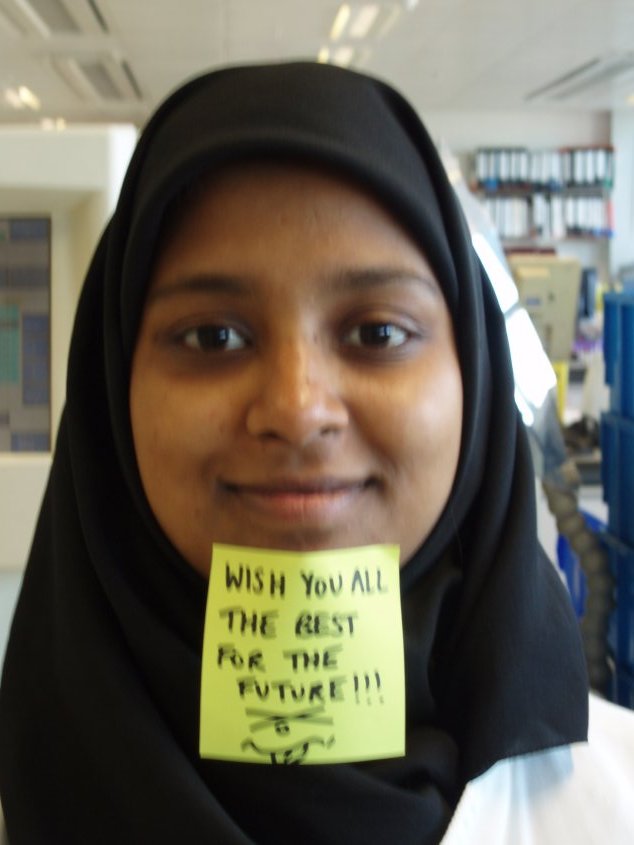 WISH YOU ALL
THE BEST
FOR THE
FUTURE!!!